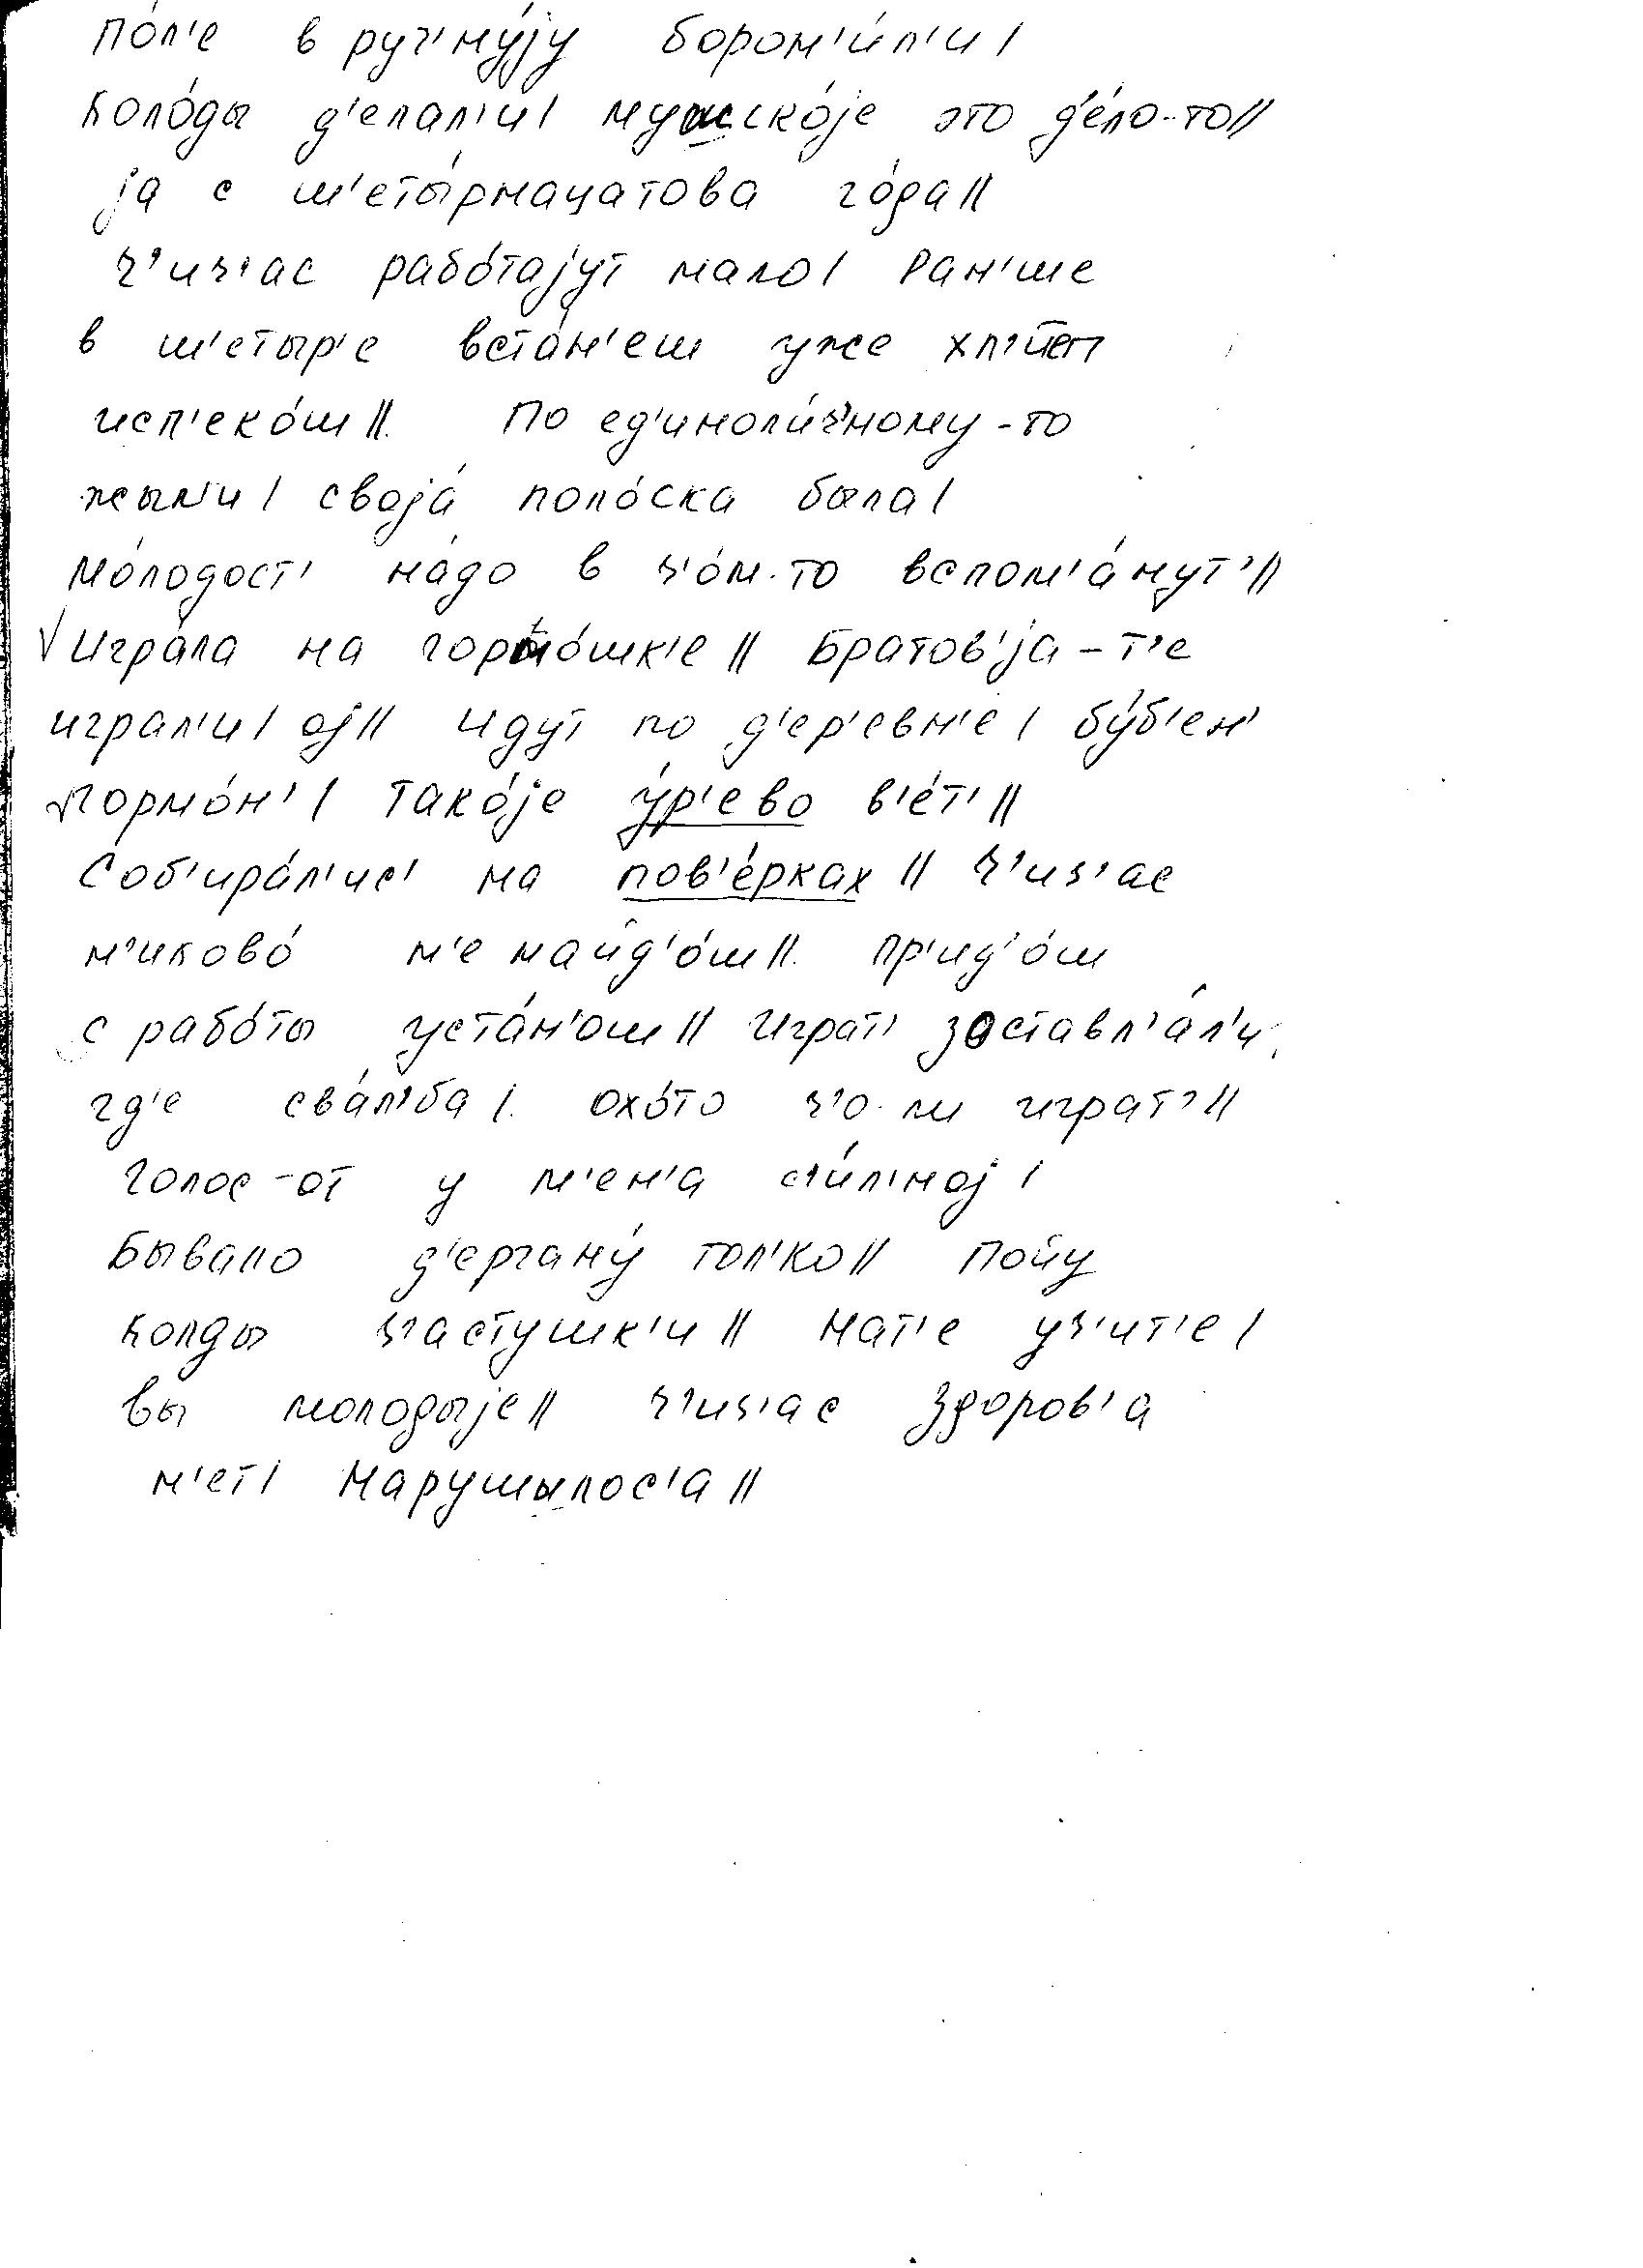 по́л'е в руч'ну́jу борон'и́л'и |
коло́ды д'елал'и | мушско́jе это д'е́ло-то ||
jа с ш'еты́рнацатова го́да ||
ч'ич'ас рабо́таjут мало | ран'ше
в ш'етыр'е вста́н'еш уже хл'и͡еп
исп'еко́ш || По ед'иноли́ч'ному-то
жыл'и | своjа́ поло́ска была |
Мо́лодост' на́до в ч'о́м-то вспом'а́нут' ||
√ Игра́ла на гормо́шк'е || Братов'jа-т'е
играл'и | оj || Идут по д'ер'евн'е | бу́б'ен'
√ гормо́н' | тако́jе у́р'ево в'е́т' ||
Соб'ира́л'ис' на пов'е́рках || Ч'ич'ас
н'иково́ н'е найд'о́ш || пр'ид'о́ш
с рабо́ты уста́н'ош || Играт' заставл'а́л'и
гд'е сва́л'ба | охо́то ч'о-ли играт' ||
Голос-от у м'ен'а с'и́л'ноj |
Бывало д'ергану́ тол'ко || Пойу
колды ч'астушк'и || Нат'е уч'ит'е |
вы молодыjе || ч'ич'ас здоров'а
н'ет | Нарушылос'а ||